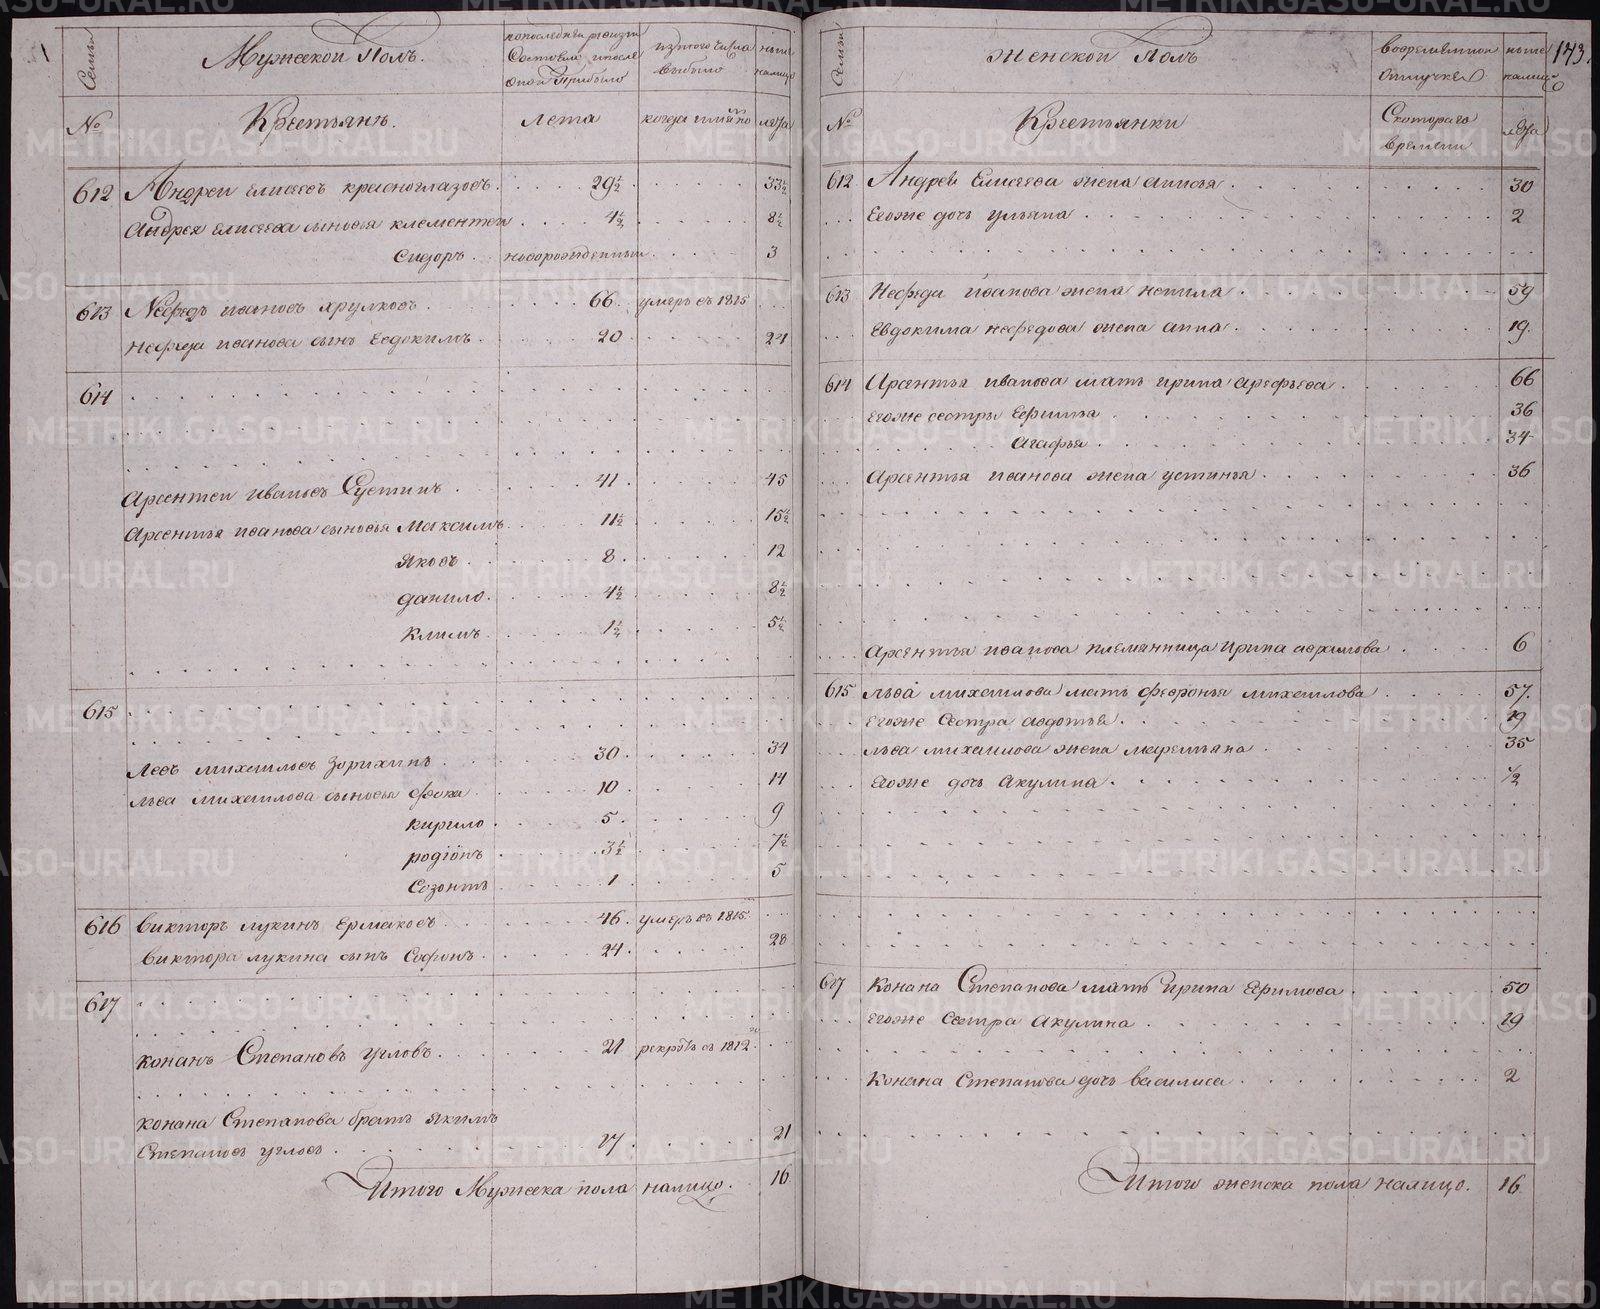 Семьи
Мужеской Полъ.
по последней ревизии
Состояли и после
Оной Прибыло
из того числа
выбыло
ныне
налицо
№
Крестьянъ.
Лета
когда имянно
лета
612 Андреи елисеевъ красноглазовъ. 29½ 33½
Андрея елисеева сыновья клементеи 4½ 8½
Сидоръ. новорожденныи 3
613 Нефедъ ивановъ хрулковъ. 66. умеръ въ 1815
Нефеда иванова сынъ Евдокимъ. 20 24
614
Арсентеи ивановъ Сустинъ. 41. 45
Арсентья иванова сыновья Максимъ. 11½ 15½
Яковъ. 8. 12
данило. 4½ 8½
Климъ. 1½ 5½
615
Левъ михаиловъ Зорихинъ. 30. 34
льва михаилова сыновья фока. 10 14
кирило. 5. 9
родiонъ 3½ 7½
Созонтъ 1 5
616 викторъ лукинъ Ермаковъ. 46. умеръ въ 1815.
виктора лукина сынъ Софонъ. 24. 28
617
Конанъ Степановъ угловъ. 21 рекрутъ съ 1812.
конана Степанова братъ якимъ
Степановъ угловъ. 17. 21
Итого Мужеска пола налицо. 16
Семьи
Женской Полъ
во временной
отлучке
ныне
налицо
173.
№
Крестьянки
С котораго
времени
лета
612 Андрея Елисеева жена анисья. 30
Егоже дочь ульяна. 2
613 Нефеда иванова жена ненила. 59
Евдокима нефедова жена анна. 19.
614 Арсентья иванова мать ирина арефьева. 66
Егоже сестры Ефимья. 36
Агафья. 34
Арсентья иванова жена устинья. 36
Арсентья иванова племянница Ирина аврамова. 6
615 льва михаилова мать февронья михаилова. 57.
Егоже Сестра авдотья. 19
льва михаилова жена маремьяна. 35
Егоже дочь Акулина. ½
617 Конана Степанова мать ирина Ефимова. 50
Егоже Сестра Акулина. 19
Конана Степанова дочь василиса. 2
Итого женска пола налицо. 16
METRIKI.GASO-URAL.RU